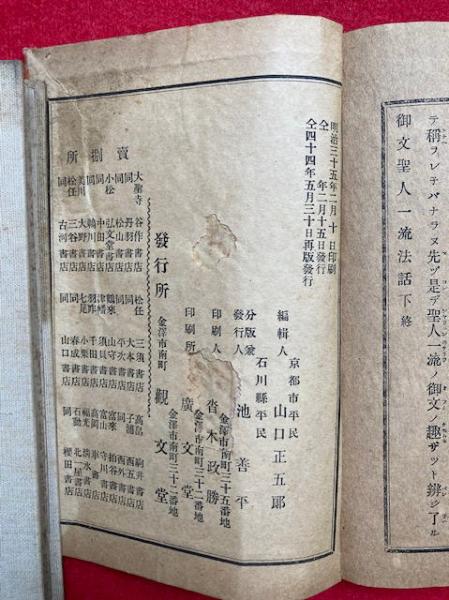 テ稱フレテバナラヌ先ヅ是デ聖人一流ノ御文ノ趣ザット辨ジ了ル
御文聖人一流法話下終
明治三十五年二月十日印刷
仝 年二月十五日發行
仝四十四年五月三十日再版發行
京都市平民
編輯人 山口正五郎
石川縣平民
分版兼
發行人 池善平
金澤市南町三十五番地
印刷人 沓木政勝
金澤市南町三十二番地
印刷所 廣文堂
金澤市南町三十二番地
發行所 金澤市南町 觀文堂
賣捌所
大聖寺 谷作書店
同 丹羽書店
同 松山書店
小松 弘文堂
同 中田書店
同 鶴川書店
美川 大野書店
松任 三谷書店
同 古河書店
松任 三須書店
同 大本書店
同 平次書店
鶴來 山守書店
津幡 須貝書店
羽咋 千田書店
七尾 小栗書店
同 春成書店
同 山口書店
高岡 駒井書店
同 西外書店
富山 守川書店
福光 清水書店
石動 北屋書店
同 櫻田書店